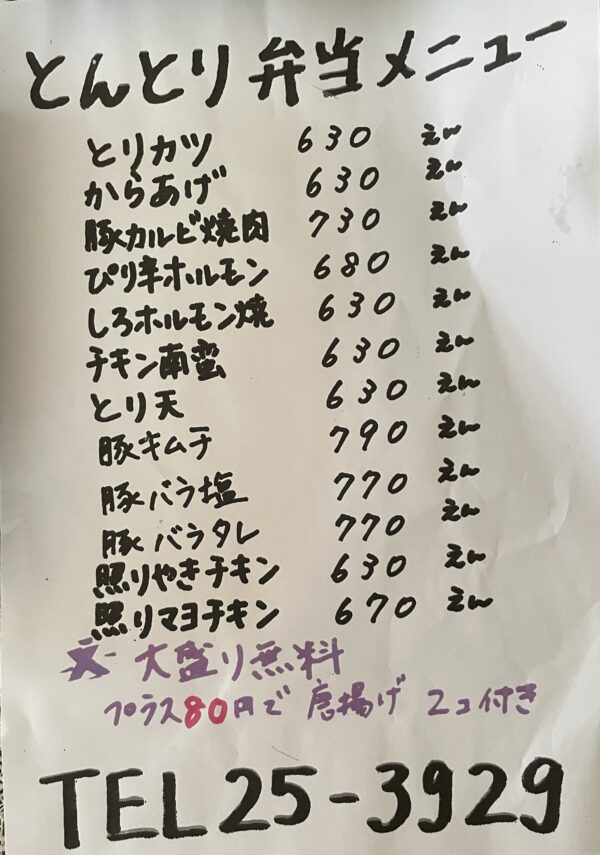 とんとり弁当メニュー
とりカツ 630 えん
からあげ 630 えん
豚カルビ焼肉 730 えん
ぴり辛ホルモン 680 えん
しろホルモン焼 630 えん
チキン南蛮 630 えん
とり天 630 えん
豚キムチ 790 えん
豚バラ塩 770 えん
豚バラタレ 770 えん
照りやきチキン 630 えん
照りマヨチキン 670 えん
大盛り無料
プラス80円で 唐揚げ 2コ付き
TEL 25-3929